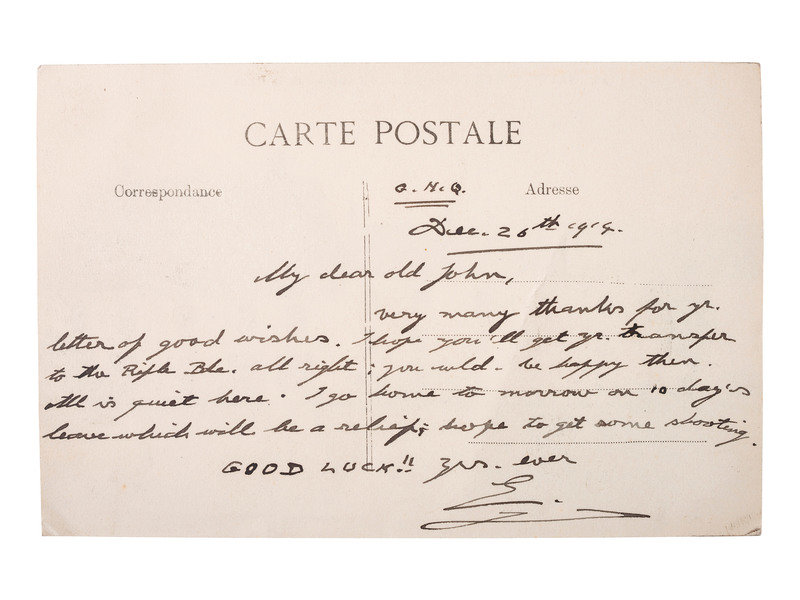 CARTE POSTALE
Correspondance
Adresse
G.H.Q.
Dec. 26th 1914.
My dear old John,
very many thanks for yr.
letter of good wishes. I hope you'll get yr. transfer
to the Rifle Bde. all right; you wld. be happy then.
All is quiet here. I go home to morrow on 10 day's
leave which will be a relief; hope to get some shooting.
GOOD LUCK!! Yrs. ever
E.